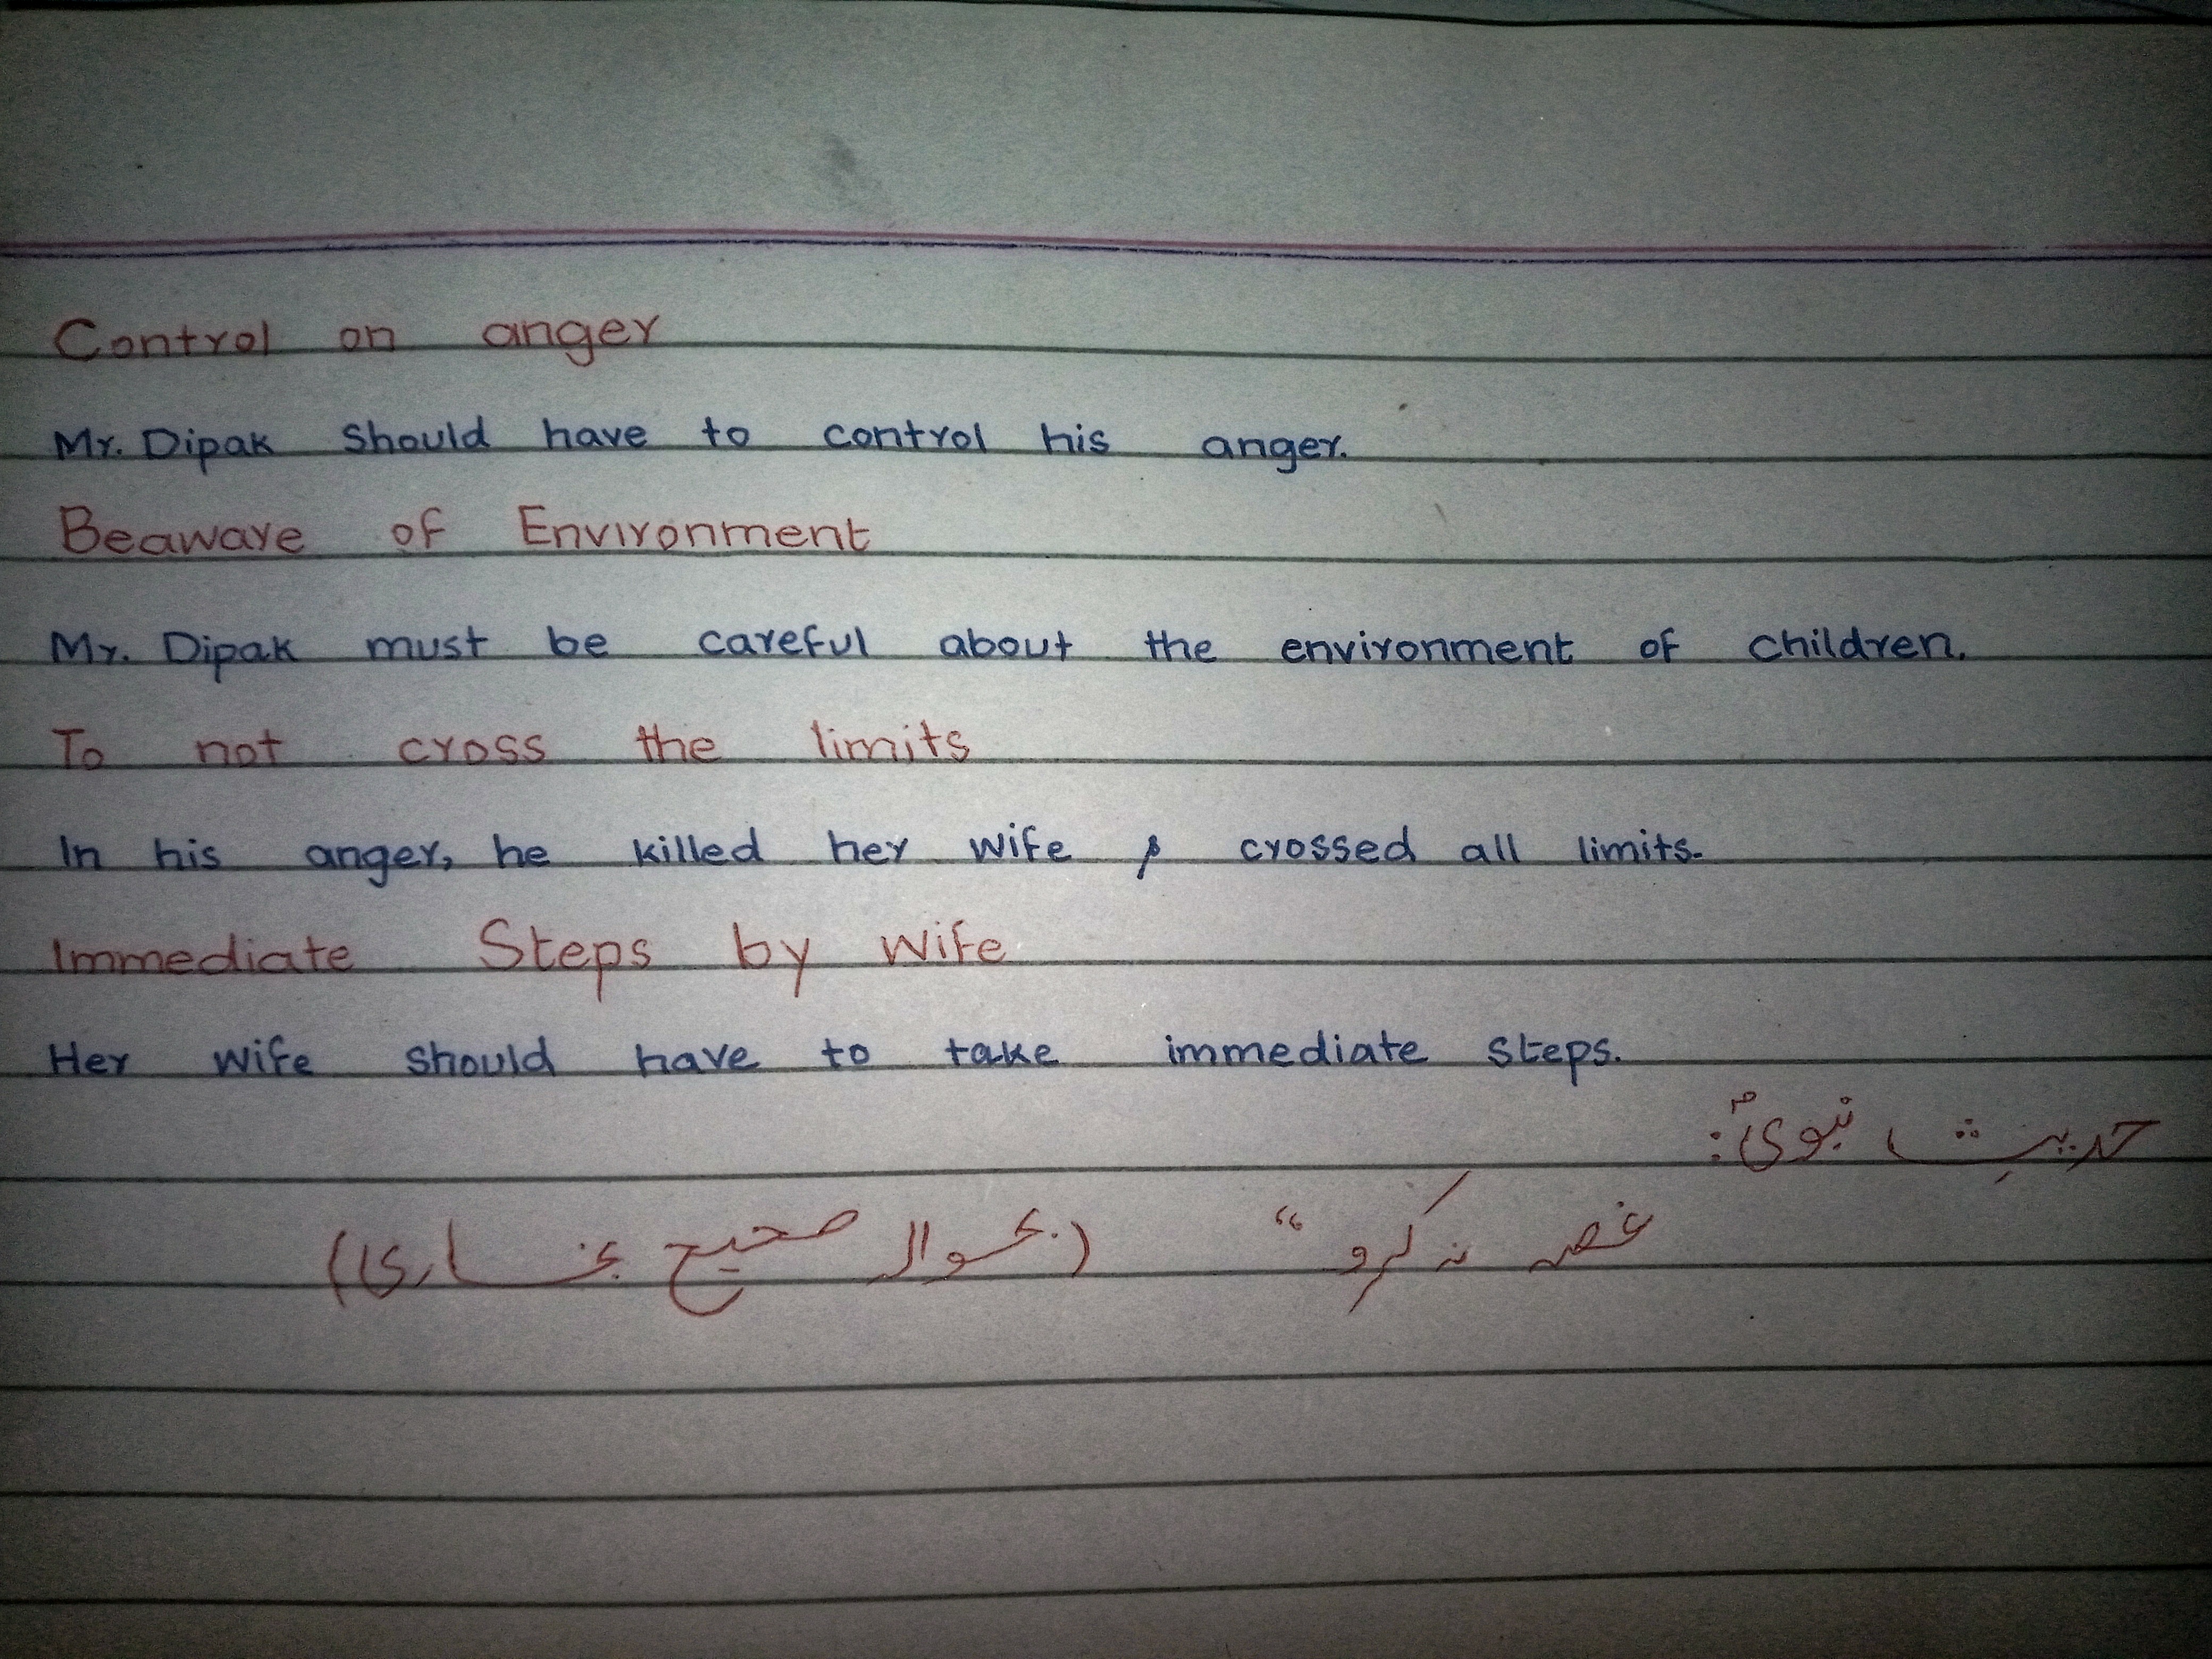 Control on anger
Mr. Dipak should have to control his anger.
Beaware of Environment
Mr. Dipak must be careful about the environment of children.
To not cross the limits
In his anger, he killed her wife & crossed all limits.
Immediate Steps by wife
Her wife should have to take immediate steps.
حدیثِ نبویؐ:
غصہ نہ کرو“ (بحوالہ صحیح بخاری)